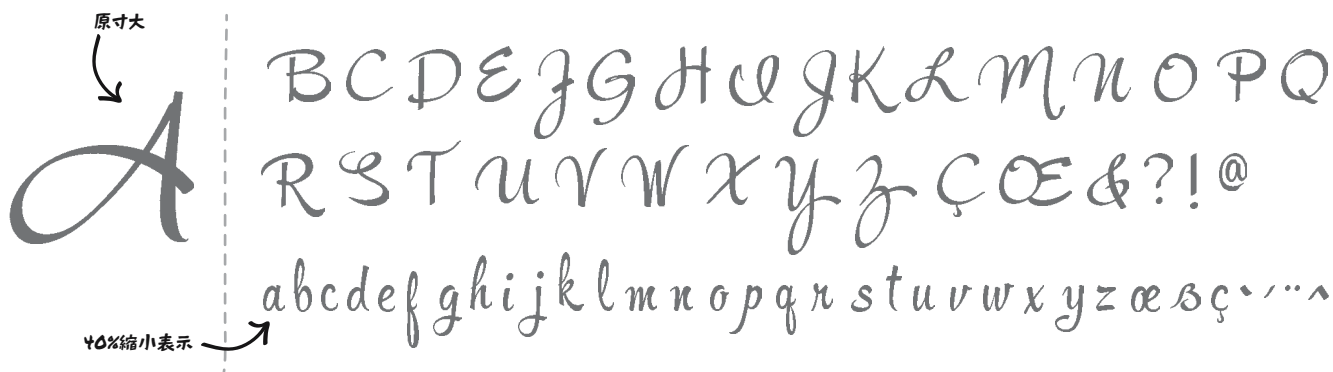 原寸大
A
B C D E F G H I J K L M N O P Q
R S T U V W X Y Z Ç Œ & ? ! @
a b c d e f g h i j k l m n o p q r s t u v w x y z œ ß ç ` ´ ¨ ^
40%縮小表示